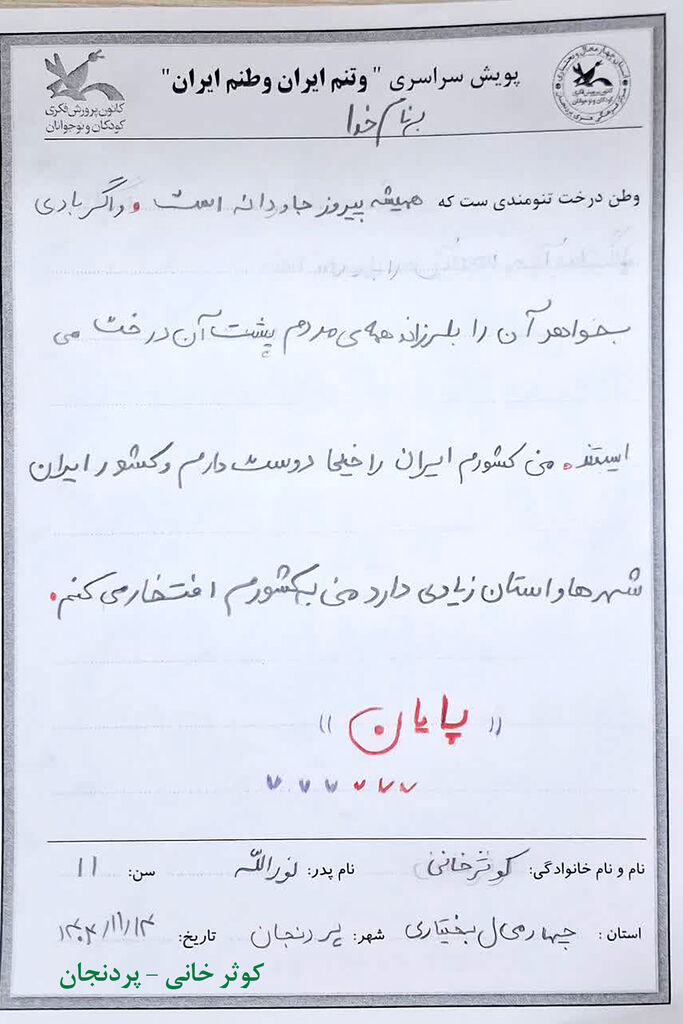 پویش سراسری "وتنم ایران وطنم ایران"
کانون پرورش فکری
کودکان و نوجوانان
به نام خدا
وطن درخت تنومندی ست که همیشه پیروز جاودانه است. و اگر بادی
بخواهد آن را بلرزاند همه ی مردم پشت آن درخت می
ایستند. من کشورم ایران را خیلی دوست دارم و کشور ایران
شهرها و استان زیادی دارد من به کشورم افتخار می کنم.
(( پایان ))
نام و نام خانوادگی: کوثر خانی نام پدر: نورالله سن: ۱۱
استان: چهارمحال بختیاری شهر: پردنجان تاریخ: ۱۴۰۴/۱۱/۱۴
کوثر خانی – پردنجان